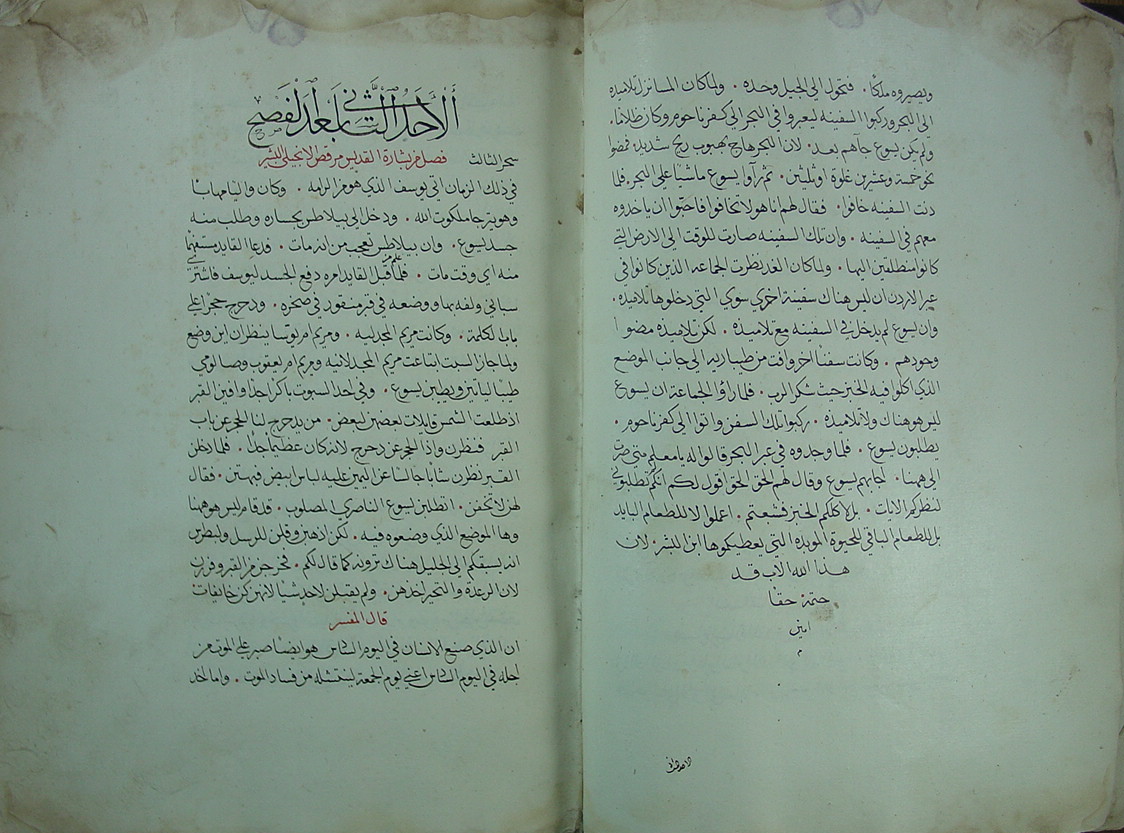 ويصيروه ملكا . فتحول الى الجبل وحده . ولما كان المسا نزل تلاميذه
الى البحر وركبوا السفينه ليعبروا في البحر الى كفرناحوم وكان ظلاما .
ولم يكن يسوع جآهم بعد . لان البحر هاج بهبوب ريح شديد . فمضوا
نحو خمسة وعشرين غلوة او ثلثين . ثم رآوا يسوع ماشيا على البحر . فلما
دنت السفينه خافوا . فقال لهم انا هو لا تخافوا فاحبوا ان ياخذوه
معهم في السفينه . وان تلك السفينه صارت للوقت الى الارض التي
كانوا منطلقين اليها . ولما كان الغد نظرت الجماعه الذين كانوا في
عبر الاردن ان ليس هناك سفينة اخري سوي التي دخلوها تلاميذه .
وان يسوع لم يدخل في السفينه مع تلاميذه . لكن تلاميذه مضوا
وحودهم . وكانت سفنا اخر وافت من طباريه الى جانب الموضع
الذي اكلوا فيه الخبز حيث شكر الرب . فلما راؤ الجماعة ان يسوع
ليس هو هناك ولا تلاميذه . ركبوا تلك السفن واتوا الى كفرناحوم .
يطلبون يسوع . فلما وجدوه في عبر البحر قالوا له يا معلم متى صرت
الى ههنا . اجابهم يسوع وقال لهم الحق الحق اقول لكم انكم تطلبوني
لنظركم الايات . بل لاكلكم الخبز فشبعتم . اعملوا لا للطعام البايد
بل للطعام الباقي للحيوة الموبده التي يعطيكموها ابن البشر . لان
هذا الله الاب قد
ختمه حقا
امين
م
الاحد الثاني التابع لاحد الفصح
سحر الثالث فصل من بشارة القديس مرقص الانجيلي البشير
في ذلك الزمان اتى يوسف الذي هو من الرامه . وكان واليا مهابا
وهو يترجا ملكوت الله . ودخل الى بيلاطس بجساره وطلب منه
جسد يسوع . وان بيلاطس تعجب من انه مات . فدعا القايد مستفهما
منه اي وقت مات . فلما علم من قبل القايد امره دفع الجسد ليوسف فاشترى
سباني ولفه بها ووضعه في قبر منقور في صخره . ودحرج حجرا على
بابا لكلمته . وكانت مريم المجدليه . ومريم ام يوسا ينظران اين وضع
ولما جاز السبت ابتاعت مريم المجدلانيه ومريم ام يعقوب وصالومي
طيبا لياتين ويطين يسوع . وفي احد السبوت باكرا جدا وافين القبر
اذ طلعت الشمس قايلات بعضهن لبعض . من يدحرج لنا الحجر عن باب
القبر فنظرن واذا الحجر عن دحرج لانه كان عظيما جدا . فلما دخلن
القبر نظرن شابا جالسا عن اليمين عليه لباس ابيض فبهتن . فقال
لهن لا تخفن . اتطلبن يسوع الناصري المصلوب . قد قام ليس هو ههنا
وها الموضع الذي وضعوه فيه . لكن اذهبن وقلن للرسل ولبطرس
انه يسبقكم الى الجليل هناك ترونه كما قال لكم . فخرجن من القبر وفررن
لان الرعدة والتحير اخذهن . ولم يقلن لاحد شيا لانهن كن خايفات
قال المفسر
ان الذي صنع الانسان في اليوم السادس هو ايضا صبر على الموت من
اجله في اليوم السادس اعني يوم الجمعة لينتشله من فساد الموت . واما اخذ